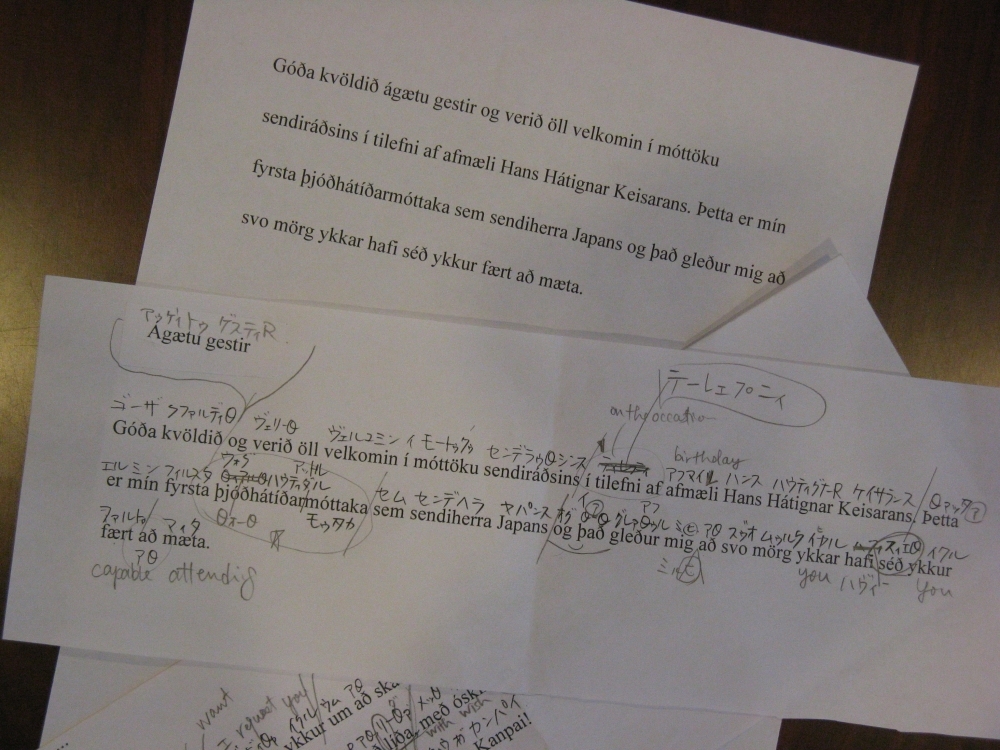 Góða kvöldið ágætu gestir og verið öll velkomin í móttöku
sendiráðsins í tilefni af afmæli Hans Hátignar Keisarans. Þetta er mín
fyrsta þjóðhátíðarmóttaka sem sendiherra Japans og það gleður mig að
svo mörg ykkar hafi séð ykkur fært að mæta.
アゥゲィトゥ ゲスティR
Ágætu gestir
テーレェプニィ
on the occation
ゴーザ クファルディθ ヴェリーθ ヴェルコミン イ モートゥクゥ センデラゥθシンス
birthday
Góða kvöldið og verið öll velkomin í móttöku sendiráðsins í tilefni af afmæli Hans Hátignar Keisarans. Þetta
アフマイル ハンス ハウティグナーR ケイサランス θァッタ
エル ミン フィルスタ ハウティダル
er mín fyrsta þjóðhátíðarmóttaka sem sendiherra Japans og það gleður mig að svo mörg ykkar hafi séð ykkur
セム センデヘラ ヤパンス オグ
モゥタカ
ファルトゥ マイタ
fært að mæta.
アθ
capable attendig
you ハヴィー you
want
I request you
イクル ウム アθ
ykkur um að ska
with wish
liða, með ósk
カンパイ
Kanpai!